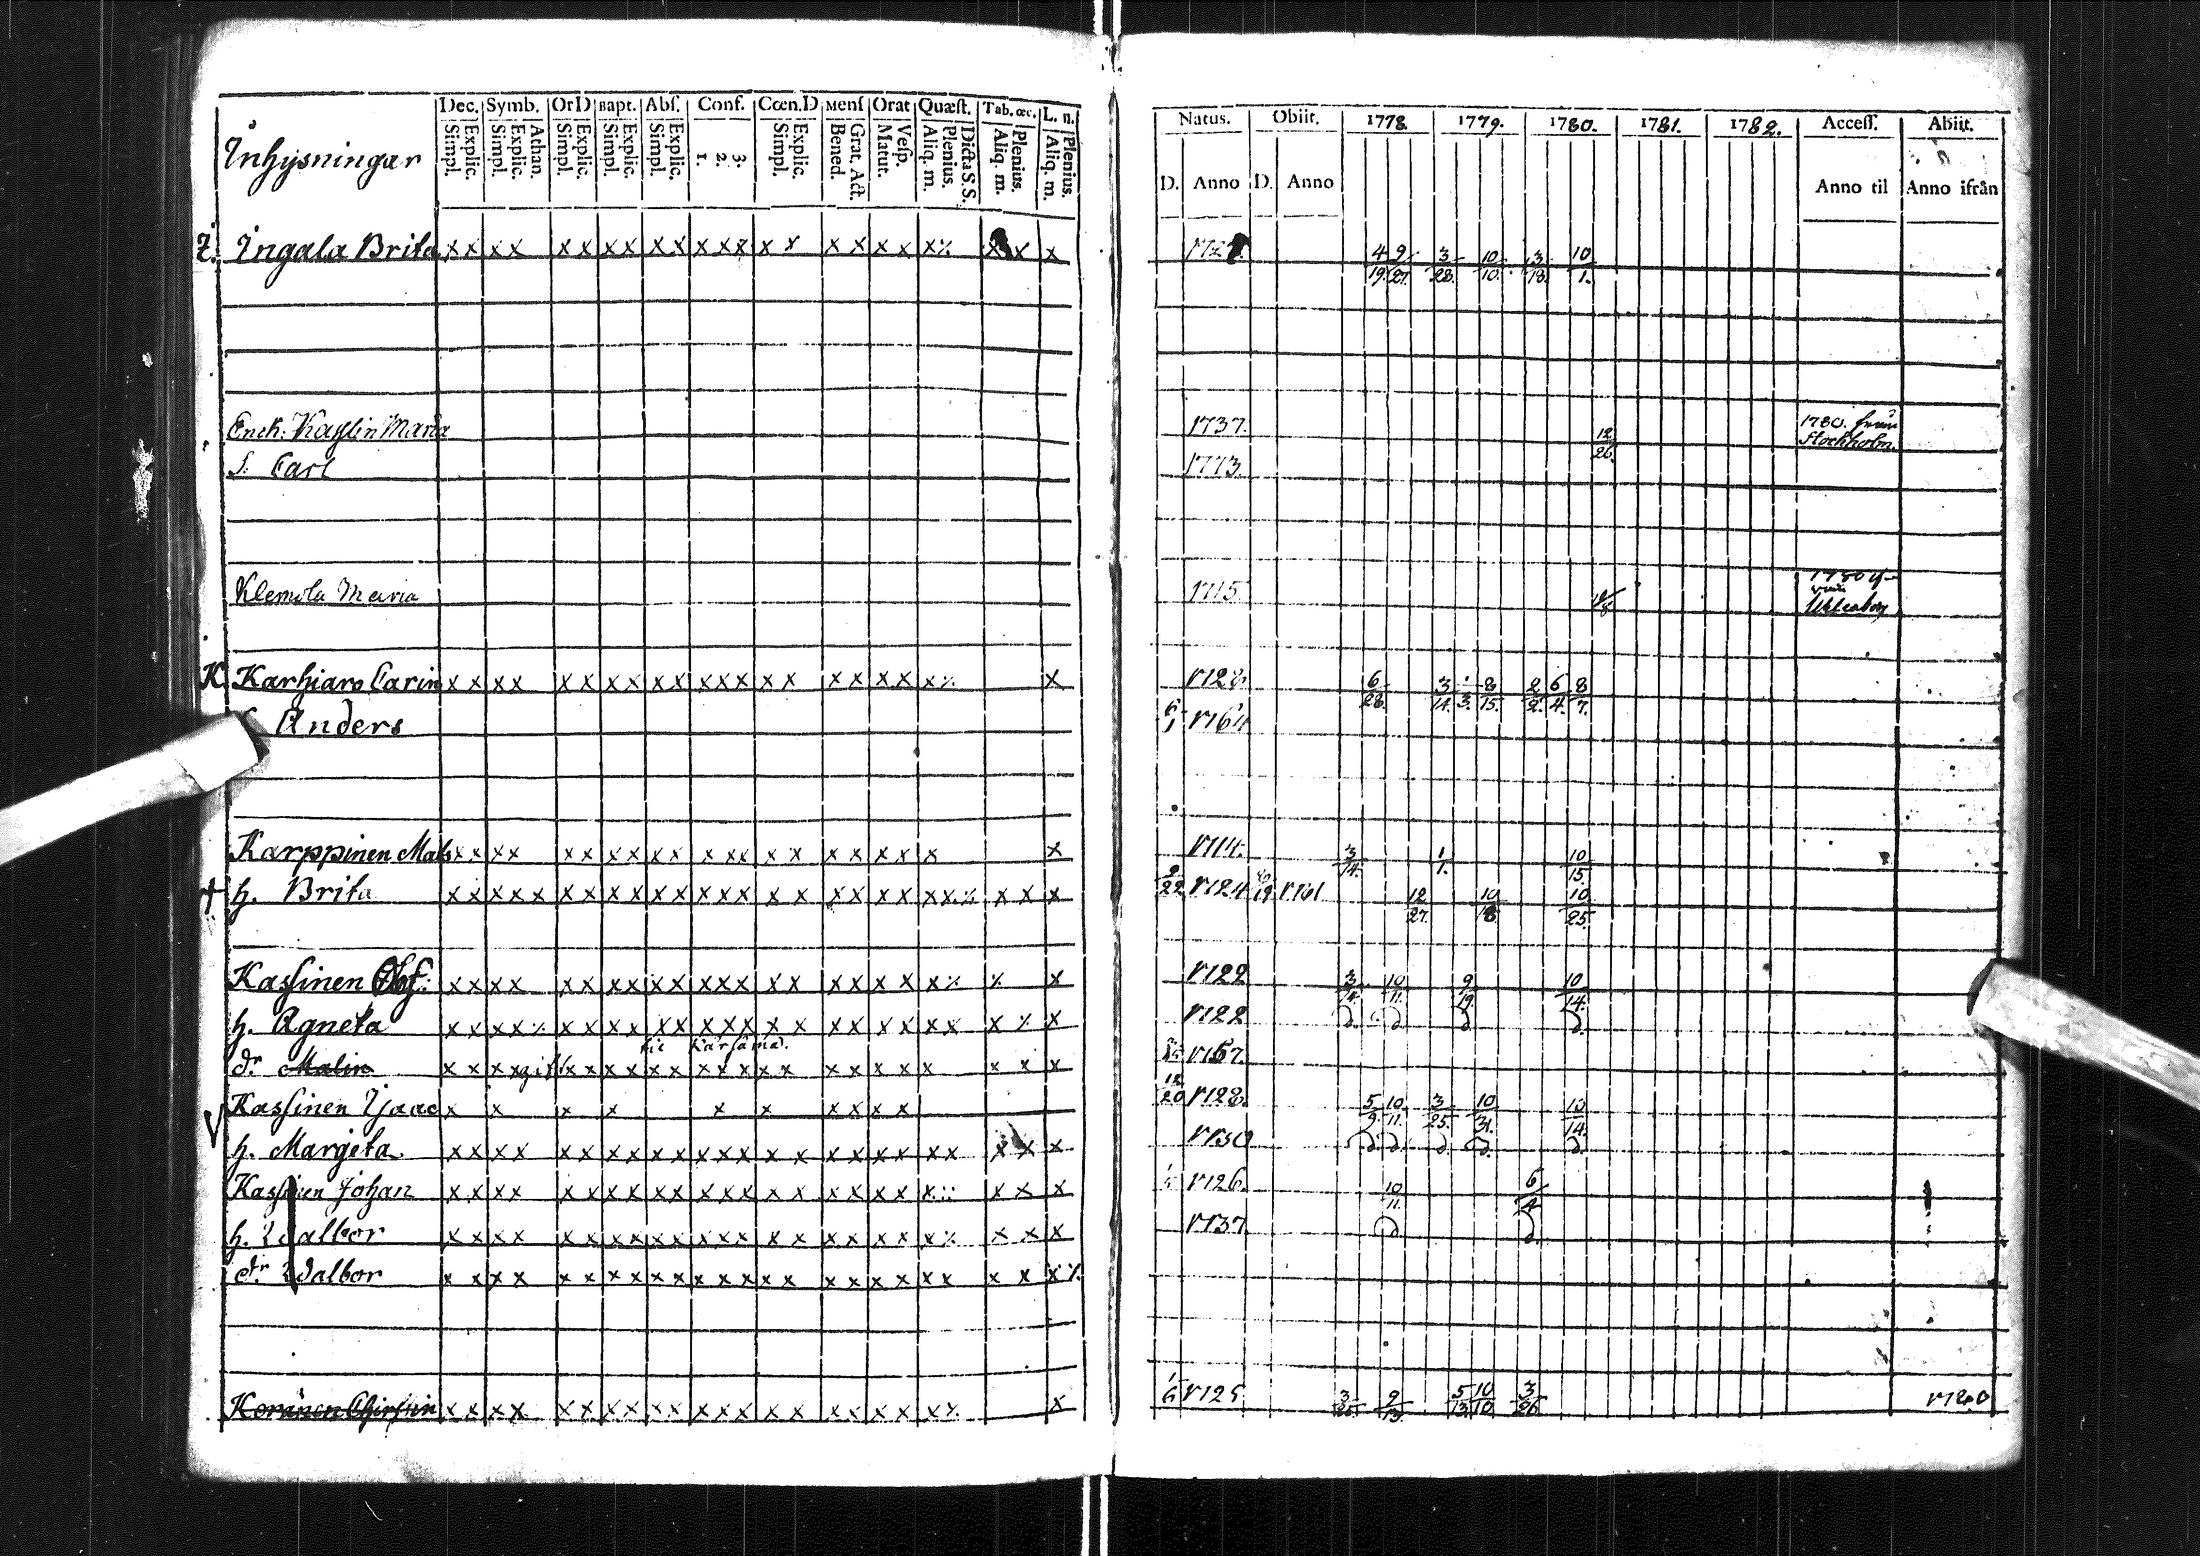 Dec. Symb. OrD Bapt. Abſ. Conf. Cœn.D Menſ Orat Quæſt. Tab. œc. L. n.
Inhysningar Simpl. Explic. Simpl. Explic. Athan. Simpl. Explic. Simpl. Explic. Simpl. Explic. 1. 2. 3. Simpl. Explic. Bened. Grat. Act. Matut. Veſp. Aliq. m. Plenius. Dicta S.S. Aliq. m. Plenius. Aliq. m. Plenius.
I. Ingala Brita x x x x x x x x x x x x x x x x x x x x ⁒ x x x
Kaſlin Maria
S. Carl
Klemola Maria
K Karhiaro Carin x x x x x x x x x x x x x x x x x x x x ⁒ x
Anders
Karppinen Mats x x x x x x x x x x x x x x x x x x x x x
+ h. Brita x x x x x x x x x x x x x x x x x x x x x x x ⁒ x x x
Kasſinen Olof: x x x x x x x x x x x x x x x x x x x x ⁒ ⁒ x
h. Agneta x x x x ⁒ x x x x x x x x x x x x x x x x x x ⁒ x
Kärsämä.
dr Malin x x x x gift x x x x x x x x x x x x x x x x x x x x
Kasſinen x x x x x x x x x x
h. Margeta x x x x x x x x x x x x x x x x x x x x x x x x
Kasſinen Johan x x x x x x x x x x x x x x x x x x x x x x x
h. Walbor x x x x x x x x x x x x x x x x x x x x ⁒ x x x
dr Walbor x x x x x x x x x x x x x x x x x x x x x x x x ⁒
x x x x x x x x x x x x x x x x x x x x ⁒ x
Natus. Obiit. 1778. 1779. 1780. 1781. 1782. Acceſſ. Abiit.
D. Anno D. Anno Anno til Anno ifrån
4/19. 9/27. 3/28. 10/10. 3/18. 10/1.
1737. 12/26. 1780. från
Stockholm.
1773.
1715.
Uhleaborg
6/28. 3/14. 8/15. 2/2. 6/4. 8/7.
6/1 1764
1714. 3/14. 1/1. 10/15.
2/22 1724 12/27. 10/18. 10/25.
1722 3/14. 10/11. 9/19. 10/14.
1722
1767.
12/20 1728. 5/9. 10/11. 3/25. 10/31. 10/14.
1730
1726. 10/11. 6/4.
1737.
1/6 1725 3/25. 9/13. 5/13. 10/10. 3/26. 1780